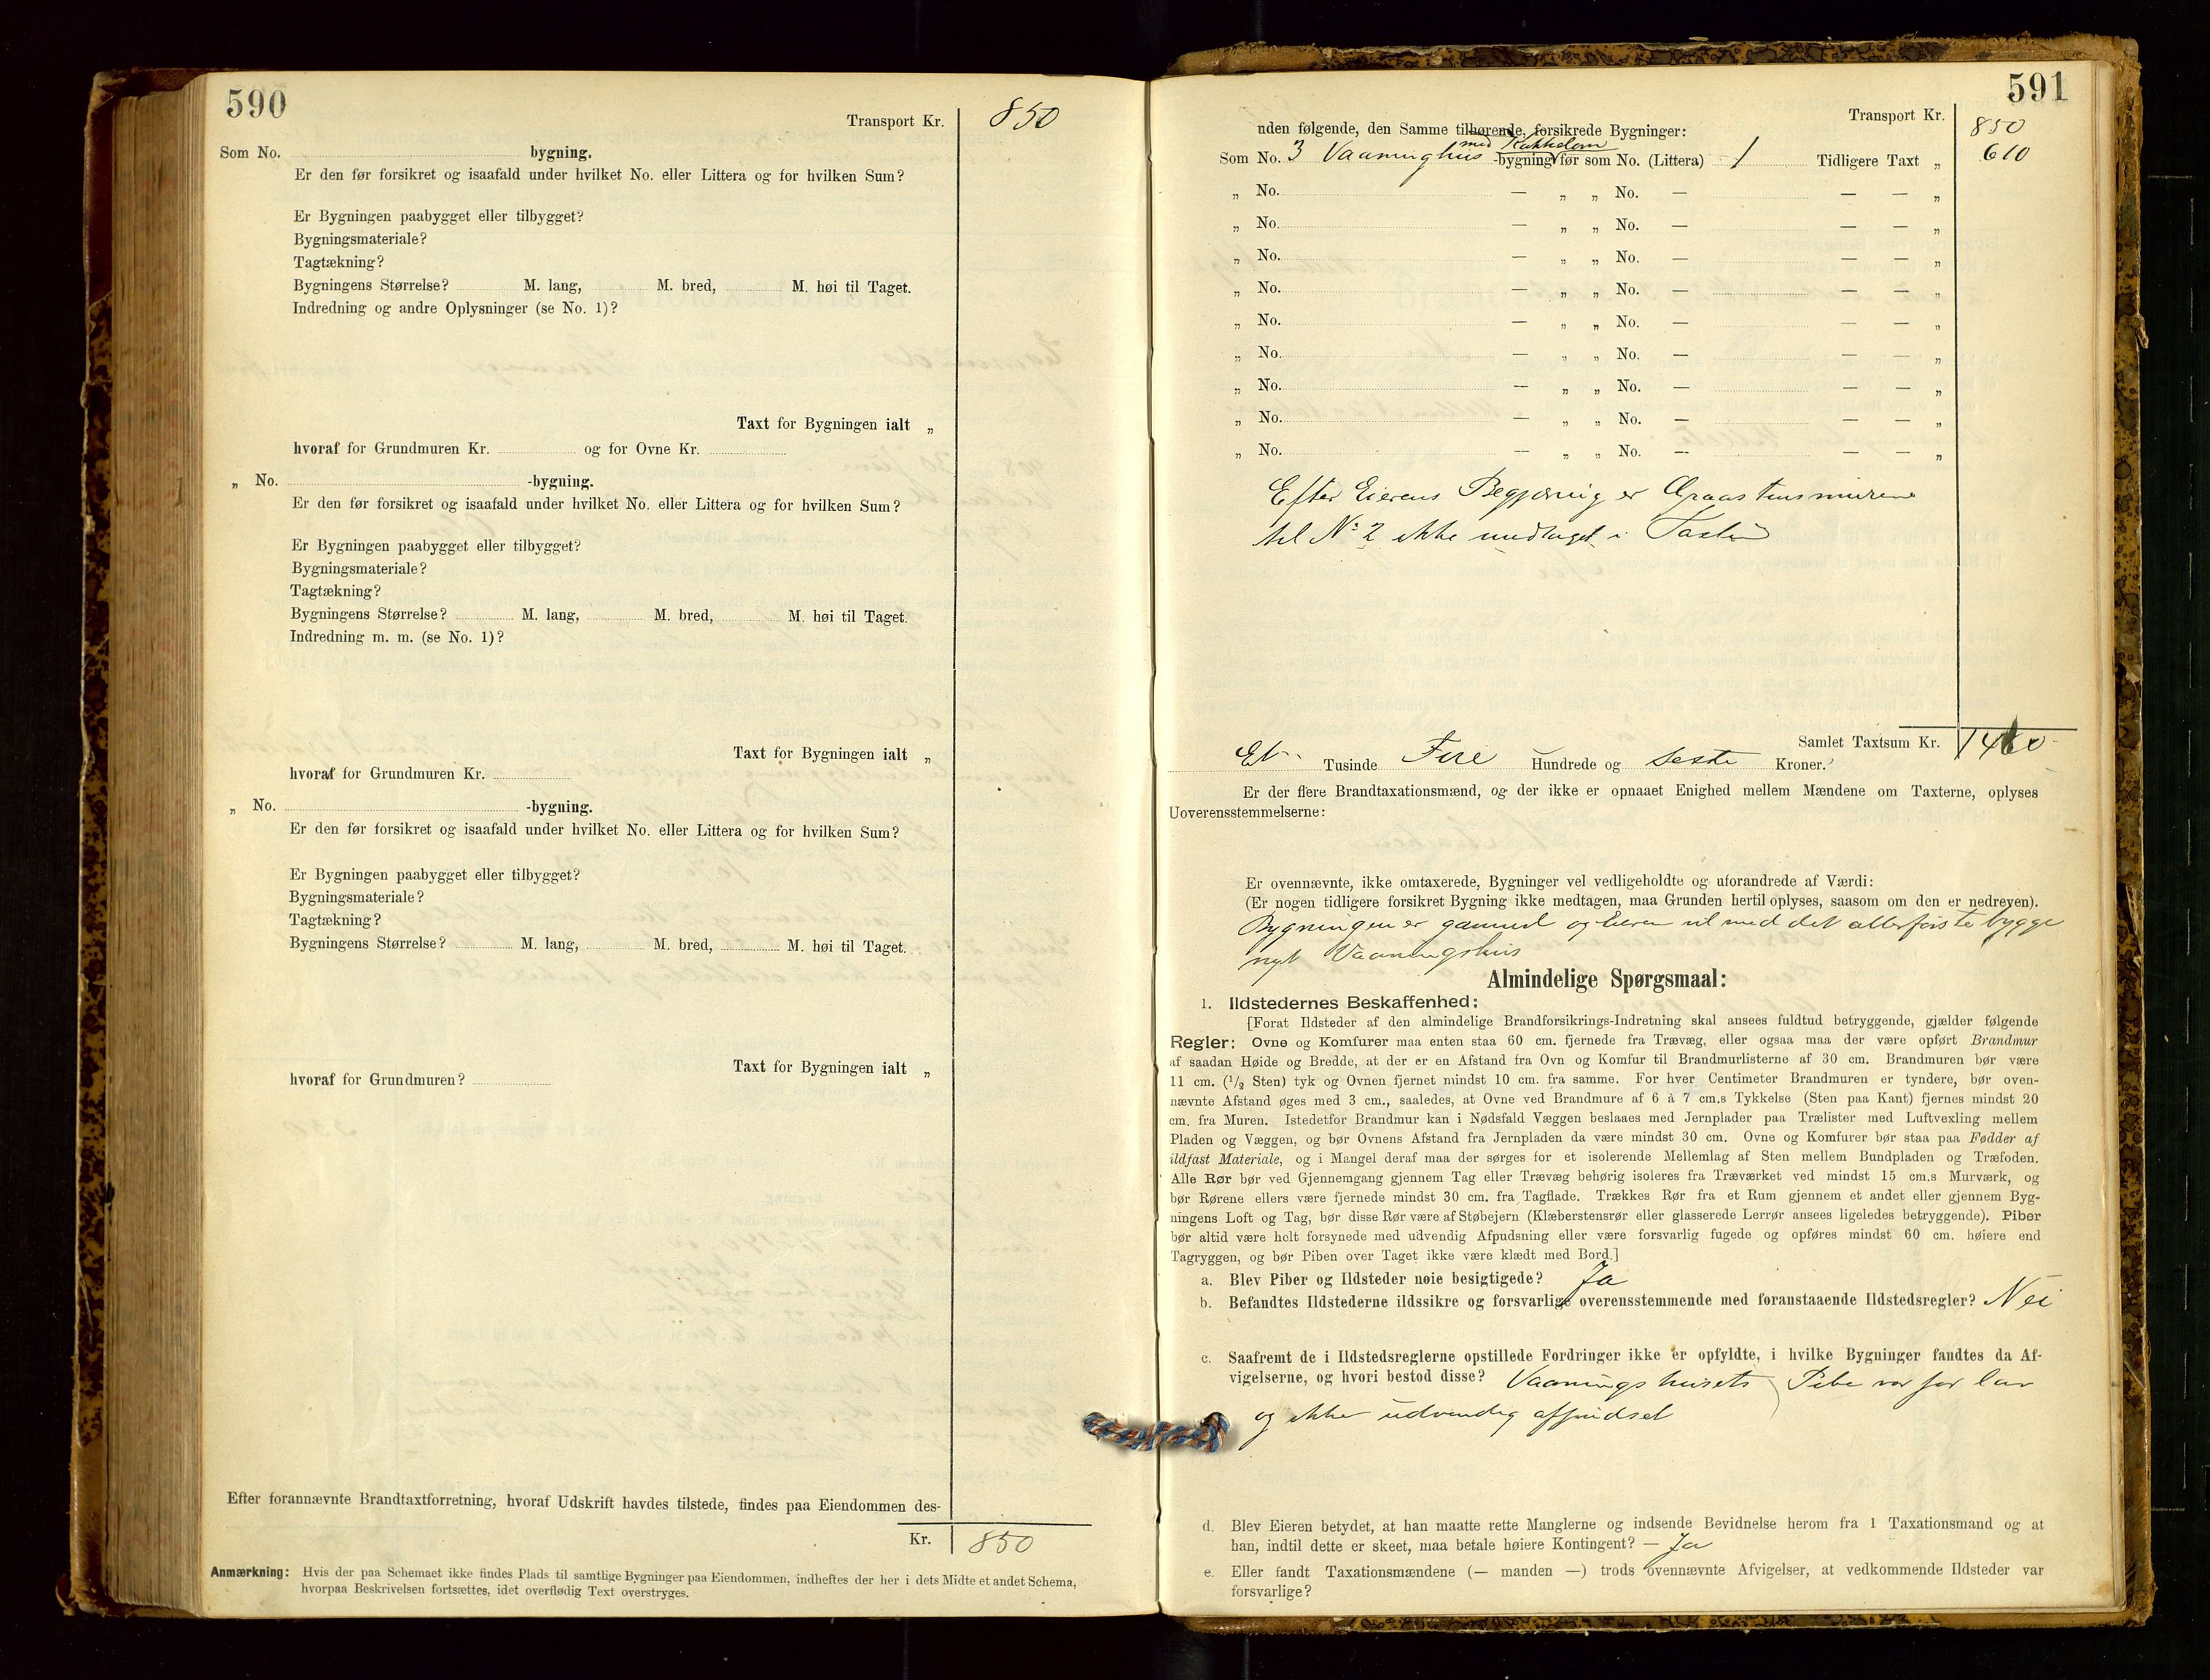 590
Transport Kr. 850
Som No. bygning.
Er den før forsikret og isaafald under hvilket No. eller Littera og for hvilken Sum?
Er Bygningen paabygget eller tilbygget?
Bygningsmateriale?
Tagtækning?
Bygningens Størrelse? M. lang, M. bred, M. høi til Taget.
Indredning og andre Oplysninger (se No. 1)?
Taxt for Bygningen ialt „
hvoraf for Grundmuren Kr. og for Ovne Kr.
„ No. -bygning.
Er den før forsikret og isaafald under hvilket No. eller Littera og for hvilken Sum?
Er Bygningen paabygget eller tilbygget?
Bygningsmateriale?
Tagtækning?
Bygningens Størrelse? M. lang, M. bred, M. høi til Taget.
Indredning m. m. (se No. 1)?
Taxt for Bygningen ialt „
hvoraf for Grundmuren Kr.
„ No. -bygning.
Er den før forsikret og isaafald under hvilket No. eller Littera og for hvilken Sum?
Er Bygningen paabygget eller tilbygget?
Bygningsmateriale?
Tagtækning?
Bygningens Størrelse? M. lang, M. bred, M. høi til Taget.
Taxt for Bygningen ialt „
hvoraf for Grundmuren?
Efter forannævnte Brandtaxtforretning, hvoraf Udskrift havdes tilstede, findes paa Eiendommen des-
Kr. 850
Anmærkning: Hvis der paa Schemaet ikke findes Plads til samtlige Bygninger paa Eiendommen, indheftes der her i dets Midte et andet Schema,
hvorpaa Beskrivelsen fortsættes, idet overflødig Text overstryges.
591
Transport Kr. 850
uden følgende, den Samme tilhørende, forsikrede Bygninger:
med
Som No. 3 Vaaninghus -bygning før som No. (Littera) 1 Tidligere Taxt „ 610
„ No. — „ „ No. — — — „
„ No. — „ „ No. — — — „
„ No. — „ „ No. — — — „
„ No. — „ „ No. — — — „
„ No. — „ „ No. — — — „
„ No. — „ „ No. — — — „
„ No. — „ „ No. — — — „
„ No. — „ „ No. — — — „
„ No. — „ „ No. — — — „
Efter Eierens Begjæring er Graastensmurene
til No 2 ikke medtaget i Taxten
Samlet Taxtsum Kr. 1460
Et Tusinde Fire Hundrede og Seksti Kroner.
Er der flere Brandtaxationsmænd, og der ikke er opnaaet Enighed mellem Mændene om Taxterne, oplyses
Uoverensstemmelserne:
Er ovennævnte, ikke omtaxerede, Bygninger vel vedligeholdte og uforandrede af Værdi:
(Er nogen tidligere forsikret Bygning ikke medtagen, maa Grunden hertil oplyses, saasom om den er nedreven).
Bygningen er gammel og Eieren vil med det allerførste bygge
nyt Vaaningshus
Almindelige Spørgsmaal:
1. Ildstedernes Beskaffenhed:
[Forat Ildsteder af den almindelige Brandforsikrings-Indretning skal ansees fuldtud betryggende, gjælder følgende
Regler: Ovne og Komfurer maa enten staa 60 cm. fjernede fra Trævæg, eller ogsaa maa der være opført Brandmur
af saadan Høide og Bredde, at der er en Afstand fra Ovn og Komfur til Brandmurlisterne af 30 cm. Brandmuren bør være
11 cm. (1/2 Sten) tyk og Ovnen fjernet mindst 10 cm. fra samme. For hver Centimeter Brandmuren er tyndere, bør oven-
nævnte Afstand øges med 3 cm., saaledes, at Ovne ved Brandmure af 6 à 7 cm.s Tykkelse (Sten paa Kant) fjernes mindst 20
cm. fra Muren. Istedetfor Brandmur kan i Nødsfald Væggen beslaaes med Jernplader paa Trælister med Luftvexling mellem
Pladen og Væggen, og bør Ovnens Afstand fra Jernpladen da være mindst 30 cm. Ovne og Komfurer bør staa paa Fødder af
ildfast Materiale, og i Mangel deraf maa der sørges for et isolerende Mellemlag af Sten mellem Bundpladen og Træfoden.
Alle Rør bør ved Gjennemgang gjennem Tag eller Trævæg behørig isoleres fra Træværket ved mindst 15 cm.s Murværk, og
bør Rørene ellers være fjernede mindst 30 cm. fra Tagflade. Trækkes Rør fra et Rum gjennem et andet eller gjennem Byg-
ningens Loft og Tag, bør disse Rør være af Støbejern (Klæberstensrør eller glasserede Lerrør ansees ligeledes betryggende). Piber
bør altid være helt forsynede med udvendig Afpudsning eller være forsvarlig fugede og opføres mindst 60 cm. høiere end
Tagryggen, og bør Piben over Taget ikke være klædt med Bord.]
a. Blev Piber og Ildsteder nøie besigtigede? Ja
b. Befandtes Ildstederne ildssikre og forsvarlige overensstemmende med foranstaaende Ildstedsregler? Nei
c. Saafremt de i Ildstedsreglerne opstillede Fordringer ikke er opfyldte, i hvilke Bygninger fandtes da Af-
vigelserne, og hvori bestod disse? Vaaningshusets Pibe var for lav
og ikke udvendig afpudset
d. Blev Eieren betydet, at han maatte rette Manglerne og indsende Bevidnelse herom fra 1 Taxationsmand og at
han, indtil dette er skeet, maa betale høiere Kontingent? — Ja
e. Eller fandt Taxationsmændene (— manden —) trods ovennævnte Afvigelser, at vedkommende Ildsteder var
forsvarlige?